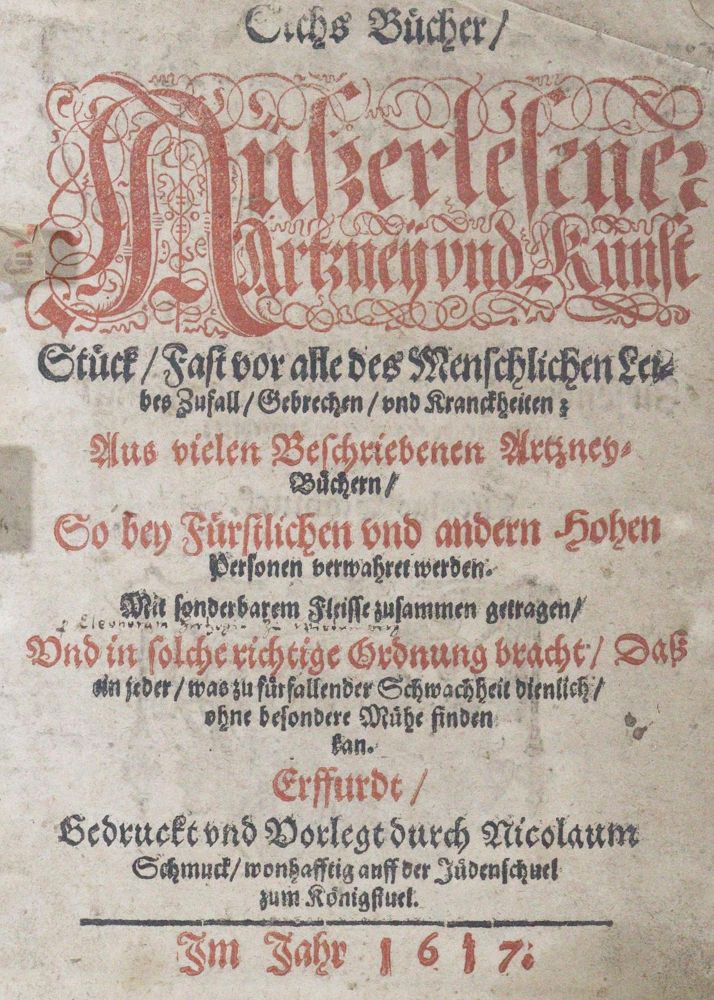 Sechs Bücher/
Außerlesener
Artzney vnd Kunst
Stück/Fast vor alle des Menschlichen Lei-
bes Zufall/Gebrechen/vnd Kranckheiten:
Aus vielen Beschriebenen Artzney-
Büchern/
So bey Fürstlichen vnd andern Hohen
Personen verwahret werden.
Mit sonderbarem Fleisse zusammen getragen/
Vnd in solche richtige Ordnung bracht/ Daß
ein jeder/was zu fürfallender Schwachheit dienlich/
ohne besondere Mühe finden
kan.
Erffurdt/
Gedruckt vnd Vorlegt durch Nicolaum
Schmuck/wonhafftig auff der Jüdenschuel
zum Königstuel.
Im Jahr 1617: